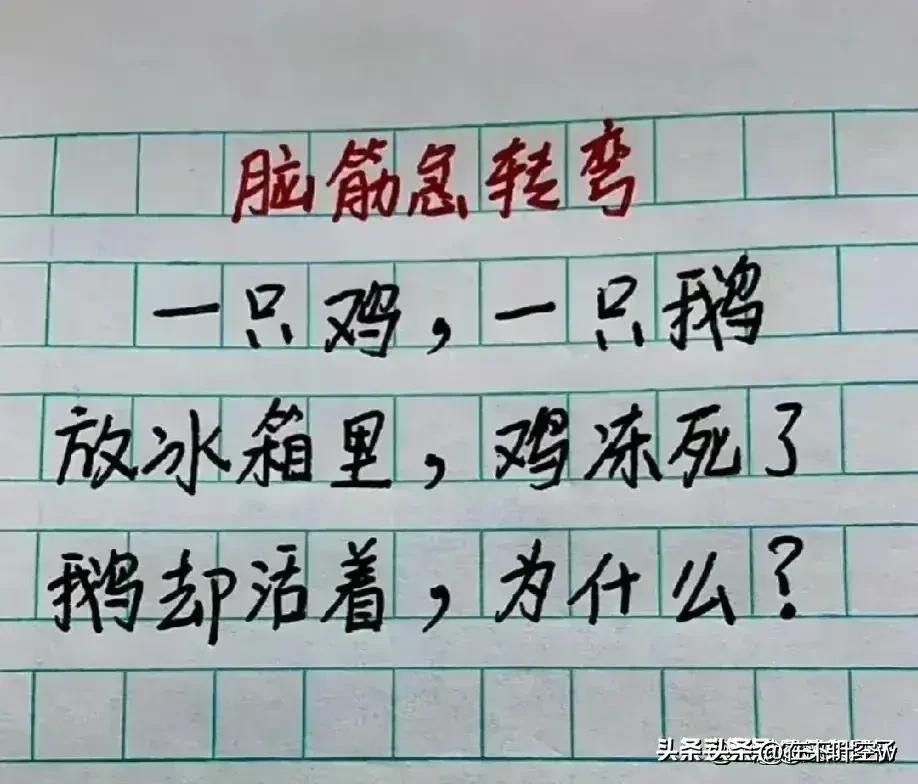 脑筋急转弯
一只鸡，一只鹅
放冰箱里，鸡冻死了
鹅却活着，为什么？